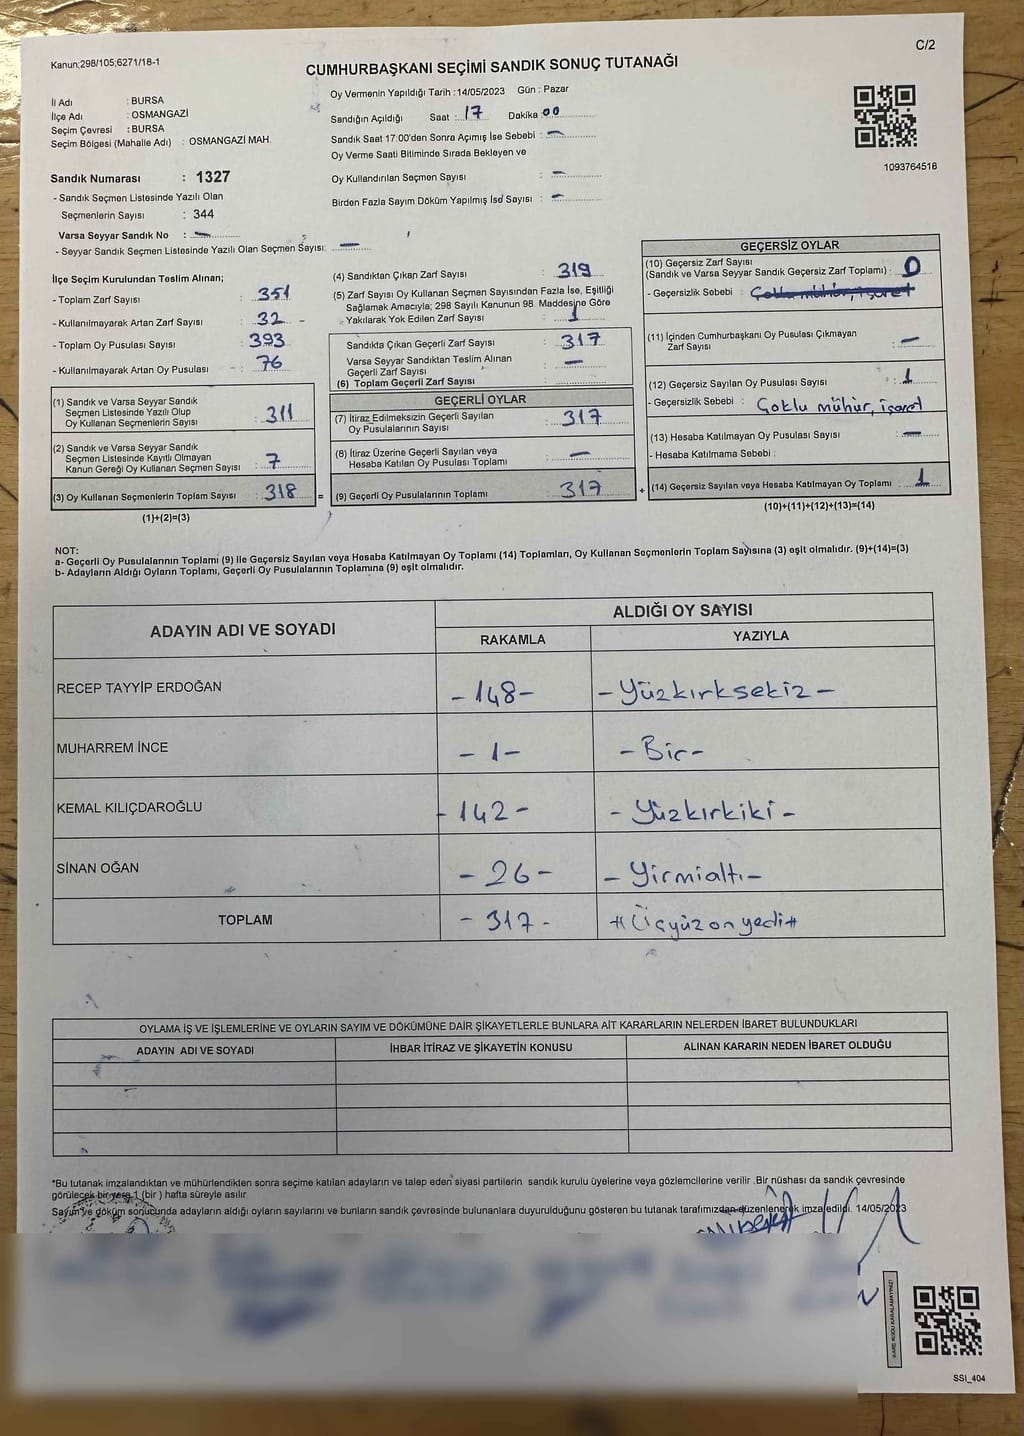 Kanun;298/105;6271/18-1
C/2
CUMHURBAŞKANI SEÇİMİ SANDIK SONUÇ TUTANAĞI
İl Adı : BURSA
İlçe Adı : OSMANGAZİ
Seçim Çevresi : BURSA
Seçim Bölgesi (Mahalle Adı) : OSMANGAZİ MAH.
Sandık Numarası : 1327
- Sandık Seçmen Listesinde Yazılı Olan
Seçmenlerin Sayısı : 344
Varsa Seyyar Sandık No : —
- Seyyar Sandık Seçmen Listesinde Yazılı Olan Seçmen Sayısı: —
Oy Vermenin Yapıldığı Tarih :14/05/2023 Gün : Pazar
Sandığın Açıldığı Saat : 17 Dakika 00
Sandık Saat 17:00'den Sonra Açımış İse Sebebi : —
Oy Verme Saati Bitiminde Sırada Bekleyen ve
Oy Kullandırılan Seçmen Sayısı : —
Birden Fazla Sayım Döküm Yapılmış İse Sayısı : —
1093764518
İlçe Seçim Kurulundan Teslim Alınan;
- Toplam Zarf Sayısı : 351
- Kullanılmayarak Artan Zarf Sayısı : 32 -
- Toplam Oy Pusulası Sayısı : 393
- Kullanılmayarak Artan Oy Pusulası : 76
(1) Sandık ve Varsa Seyyar Sandık
Seçmen Listesinde Yazılı Olup
Oy Kullanan Seçmenlerin Sayısı : 311
(2) Sandık ve Varsa Seyyar Sandık
Seçmen Listesinde Kayıtlı Olmayan
Kanun Gereği Oy Kullanan Seçmen Sayısı : 7
(3) Oy Kullanan Seçmenlerin Toplam Sayısı : 318 =
(1)+(2)=(3)
(4) Sandıktan Çıkan Zarf Sayısı : 319
(5) Zarf Sayısı Oy Kullanan Seçmen Sayısından Fazla İse, Eşitliği
Sağlamak Amacıyla; 298 Sayılı Kanunun 98. Maddesine Göre
Yakılarak Yok Edilen Zarf Sayısı : 1
Sandıkta Çıkan Geçerli Zarf Sayısı : 317
Varsa Seyyar Sandıktan Teslim Alınan
Geçerli Zarf Sayısı : —
(6) Toplam Geçerli Zarf Sayısı :
GEÇERLİ OYLAR
(7) İtiraz Edilmeksizin Geçerli Sayılan
Oy Pusulalarının Sayısı : 317
(8) İtiraz Üzerine Geçerli Sayılan veya
Hesaba Katılan Oy Pusulası Toplamı : —
(9) Geçerli Oy Pusulalarının Toplamı : 317 +
GEÇERSİZ OYLAR
(10) Geçersiz Zarf Sayısı
(Sandık ve Varsa Seyyar Sandık Geçersiz Zarf Toplamı) : 0
- Geçersizlik Sebebi : Çoklu mühür, işaret
(11) İçinden Cumhurbaşkanı Oy Pusulası Çıkmayan
Zarf Sayısı : —
(12) Geçersiz Sayılan Oy Pusulası Sayısı : 1
- Geçersizlik Sebebi : Çoklu mühür, işaret
(13) Hesaba Katılmayan Oy Pusulası Sayısı : —
- Hesaba Katılmama Sebebi :
(14) Geçersiz Sayılan veya Hesaba Katılmayan Oy Toplamı : 1
(10)+(11)+(12)+(13)=(14)
NOT:
a- Geçerli Oy Pusulalarının Toplamı (9) ile Geçersiz Sayılan veya Hesaba Katılmayan Oy Toplamı (14) Toplamları, Oy Kullanan Seçmenlerin Toplam Sayısına (3) eşit olmalıdır. (9)+(14)=(3)
b- Adayların Aldığı Oyların Toplamı, Geçerli Oy Pusulalarının Toplamına (9) eşit olmalıdır.
ADAYIN ADI VE SOYADI
ALDIĞI OY SAYISI
RAKAMLA YAZIYLA
RECEP TAYYİP ERDOĞAN -148- -Yüzkırksekiz-
MUHARREM İNCE -1- -Bir-
KEMAL KILIÇDAROĞLU -142- -Yüzkırkiki-
SİNAN OĞAN -26- -Yirmialtı-
TOPLAM -317- #Üçyüzonyedi#
OYLAMA İŞ VE İŞLEMLERİNE VE OYLARIN SAYIM VE DÖKÜMÜNE DAİR ŞİKAYETLERLE BUNLARA AİT KARARLARIN NELERDEN İBARET BULUNDUKLARI
ADAYIN ADI VE SOYADI İHBAR İTİRAZ VE ŞİKAYETİN KONUSU ALINAN KARARIN NEDEN İBARET OLDUĞU
*Bu tutanak imzalandıktan ve mühürlendikten sonra seçime katılan adayların ve talep eden siyasi partilerin sandık kurulu üyelerine veya gözlemcilerine verilir .Bir nüshası da sandık çevresinde
görülecek bir yere 1 (bir ) hafta süreyle asılır.
Sayım ve döküm sonucunda adayların aldığı oyların sayılarını ve bunların sandık çevresinde bulunanlara duyurulduğunu gösteren bu tutanak tarafımızdan düzenlenerek imza edildi. 14/05/2023
KARE KODU KARALAMAYINIZ!
SSI_404